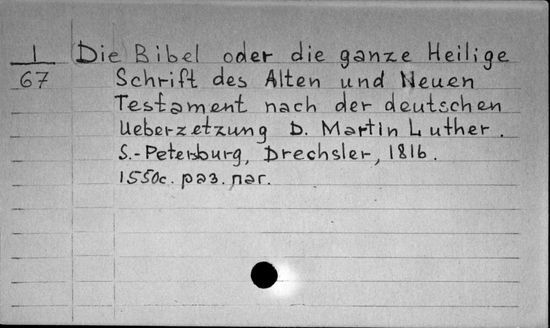 I
67
Die Bibel oder die ganze Heilige
Schrift des Alten und Neuen
Testament nach der deutschen
Ueberzetzung D. Martin Luther.
S.-Petersburg, Drechsler, 1816.
1550с. раз. паг.